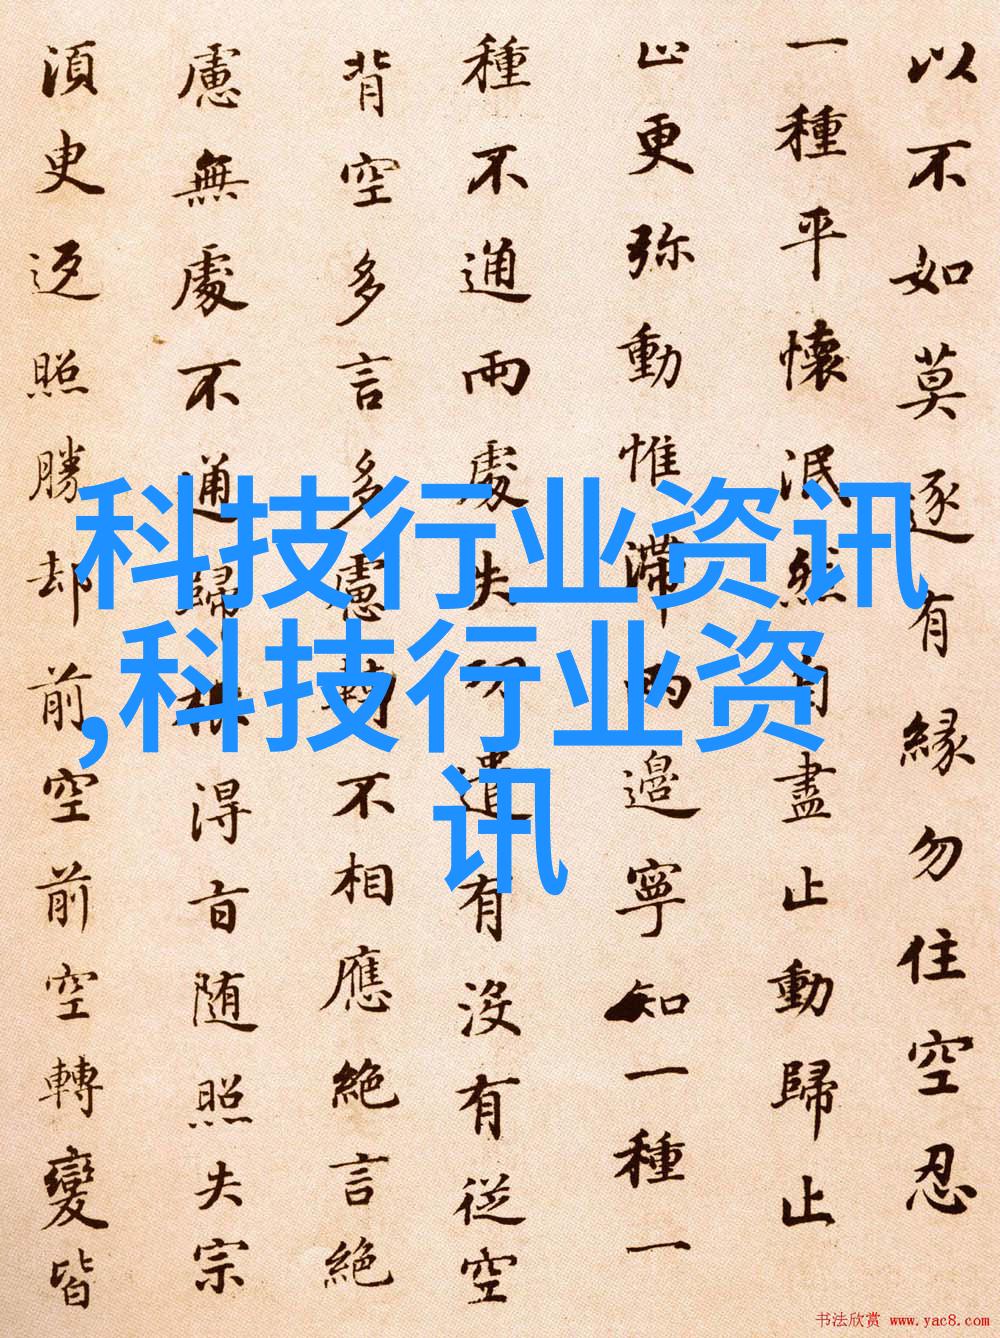 以不如莫逐有緣勿住空忍
一種平懷泯然自盡止動歸止
止更弥動惟滞兩邊寧知一種一
種不通兩處失功遣有沒有從空
背空多言多慮轉不相應絶言絶
慮無處不通歸根得旨随照失宗
須臾返照勝却前空前空轉變皆
科技行业资讯
,科技行业资
讯
书法欣赏 www.yac8.com